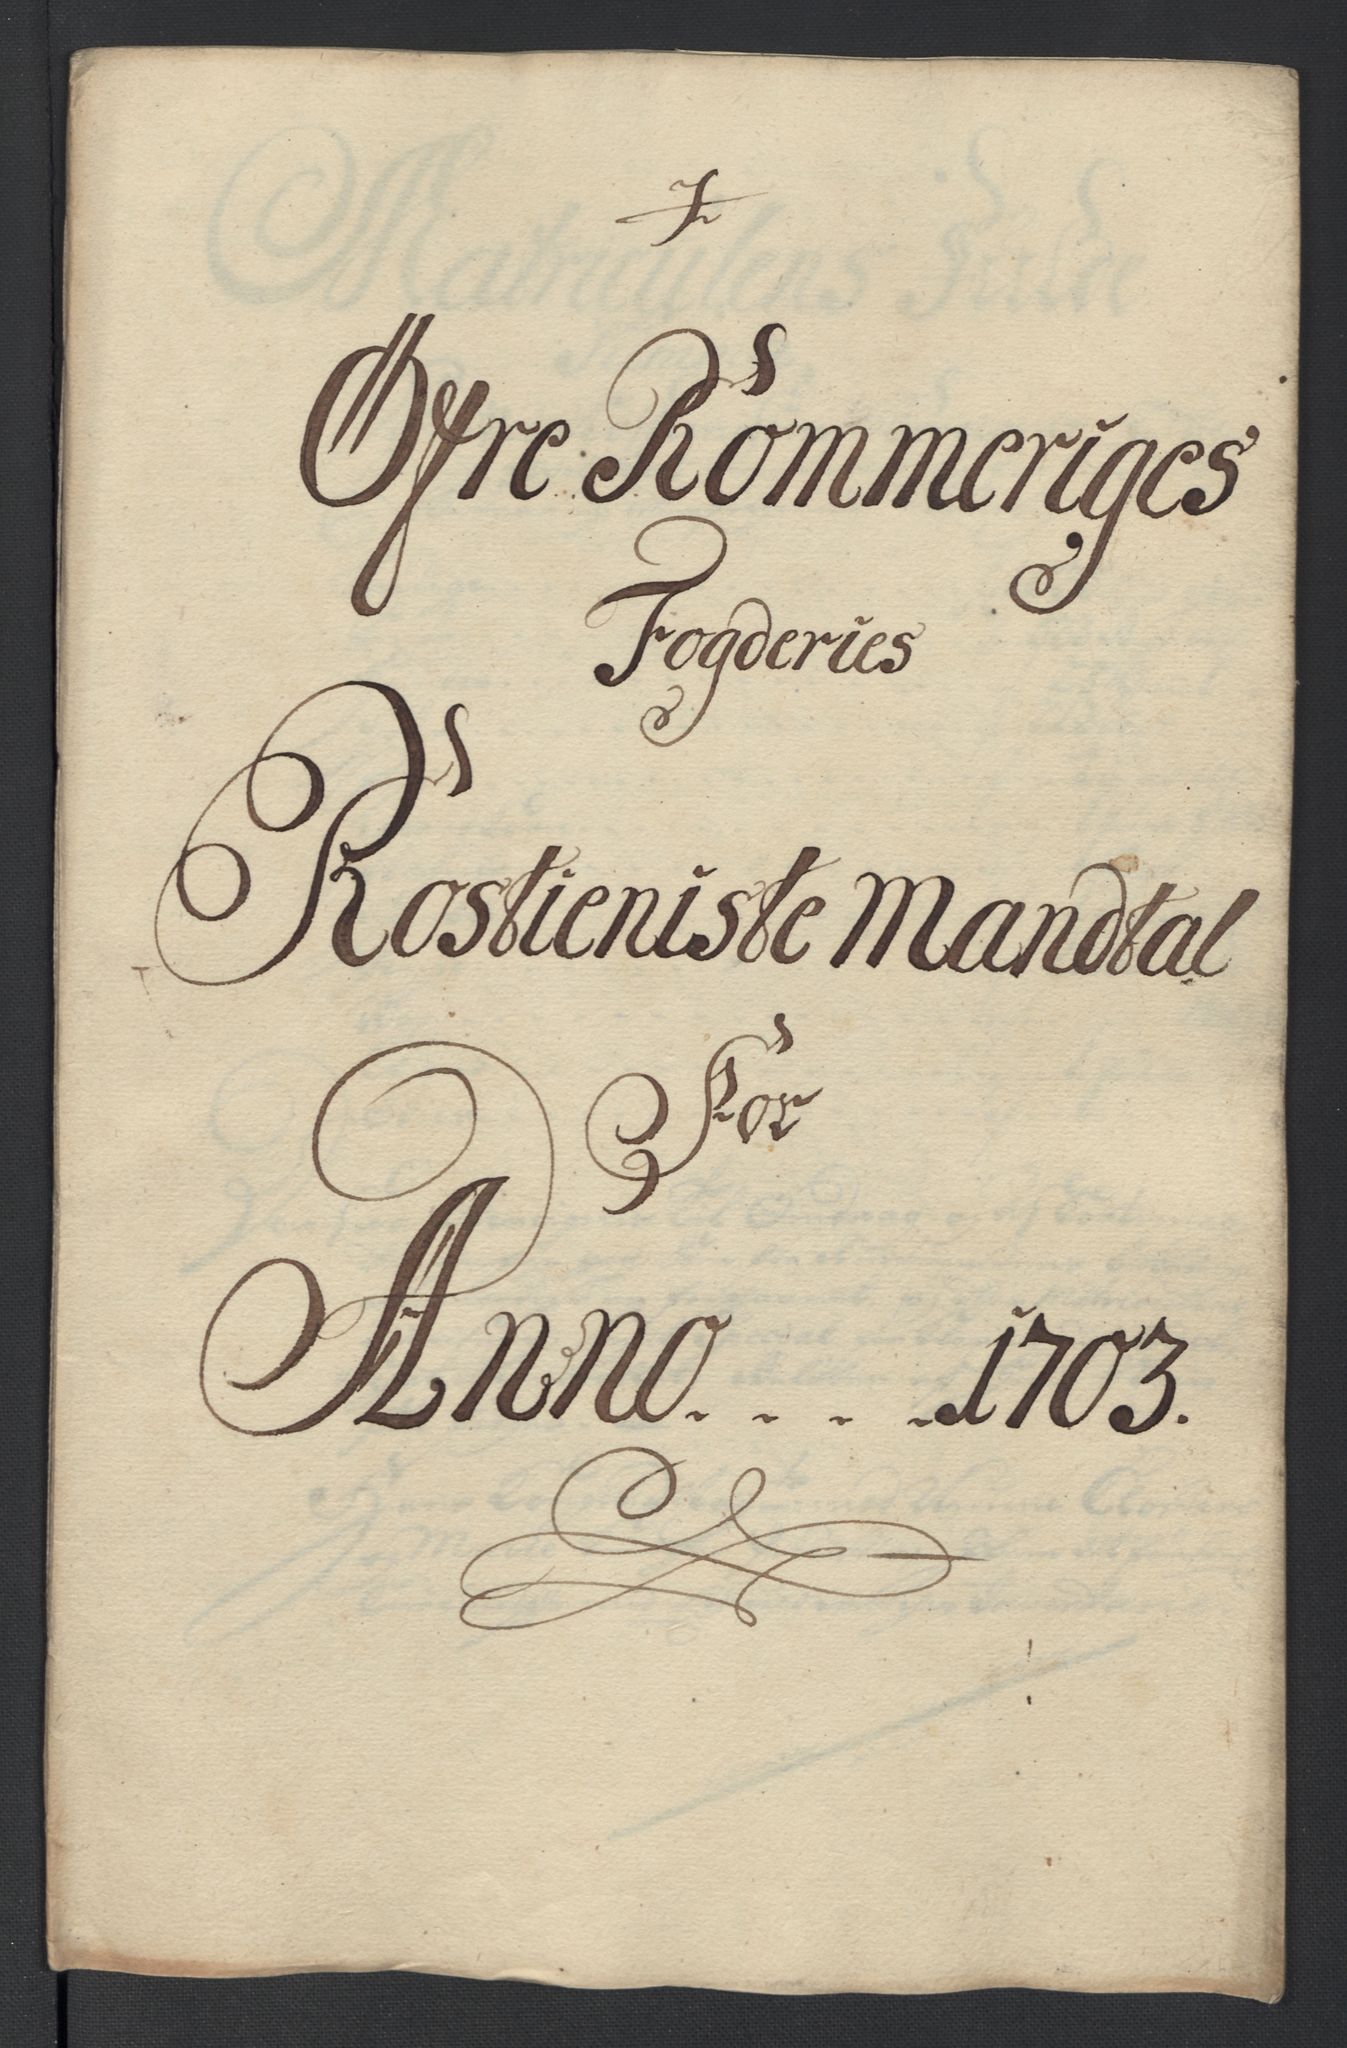 Øfre Rommeriges
Fogderies
Rostieniste Mandtal
For
Anno....1703.